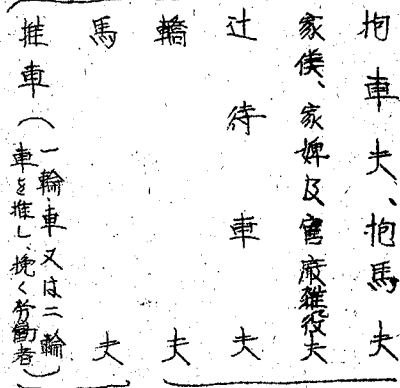 抱車夫、抱馬夫
家僕、家婢及官廠雑役夫
辻待車夫
轎夫
馬夫
推車(一輪車又は二輪
車を推し、挽く労働者)